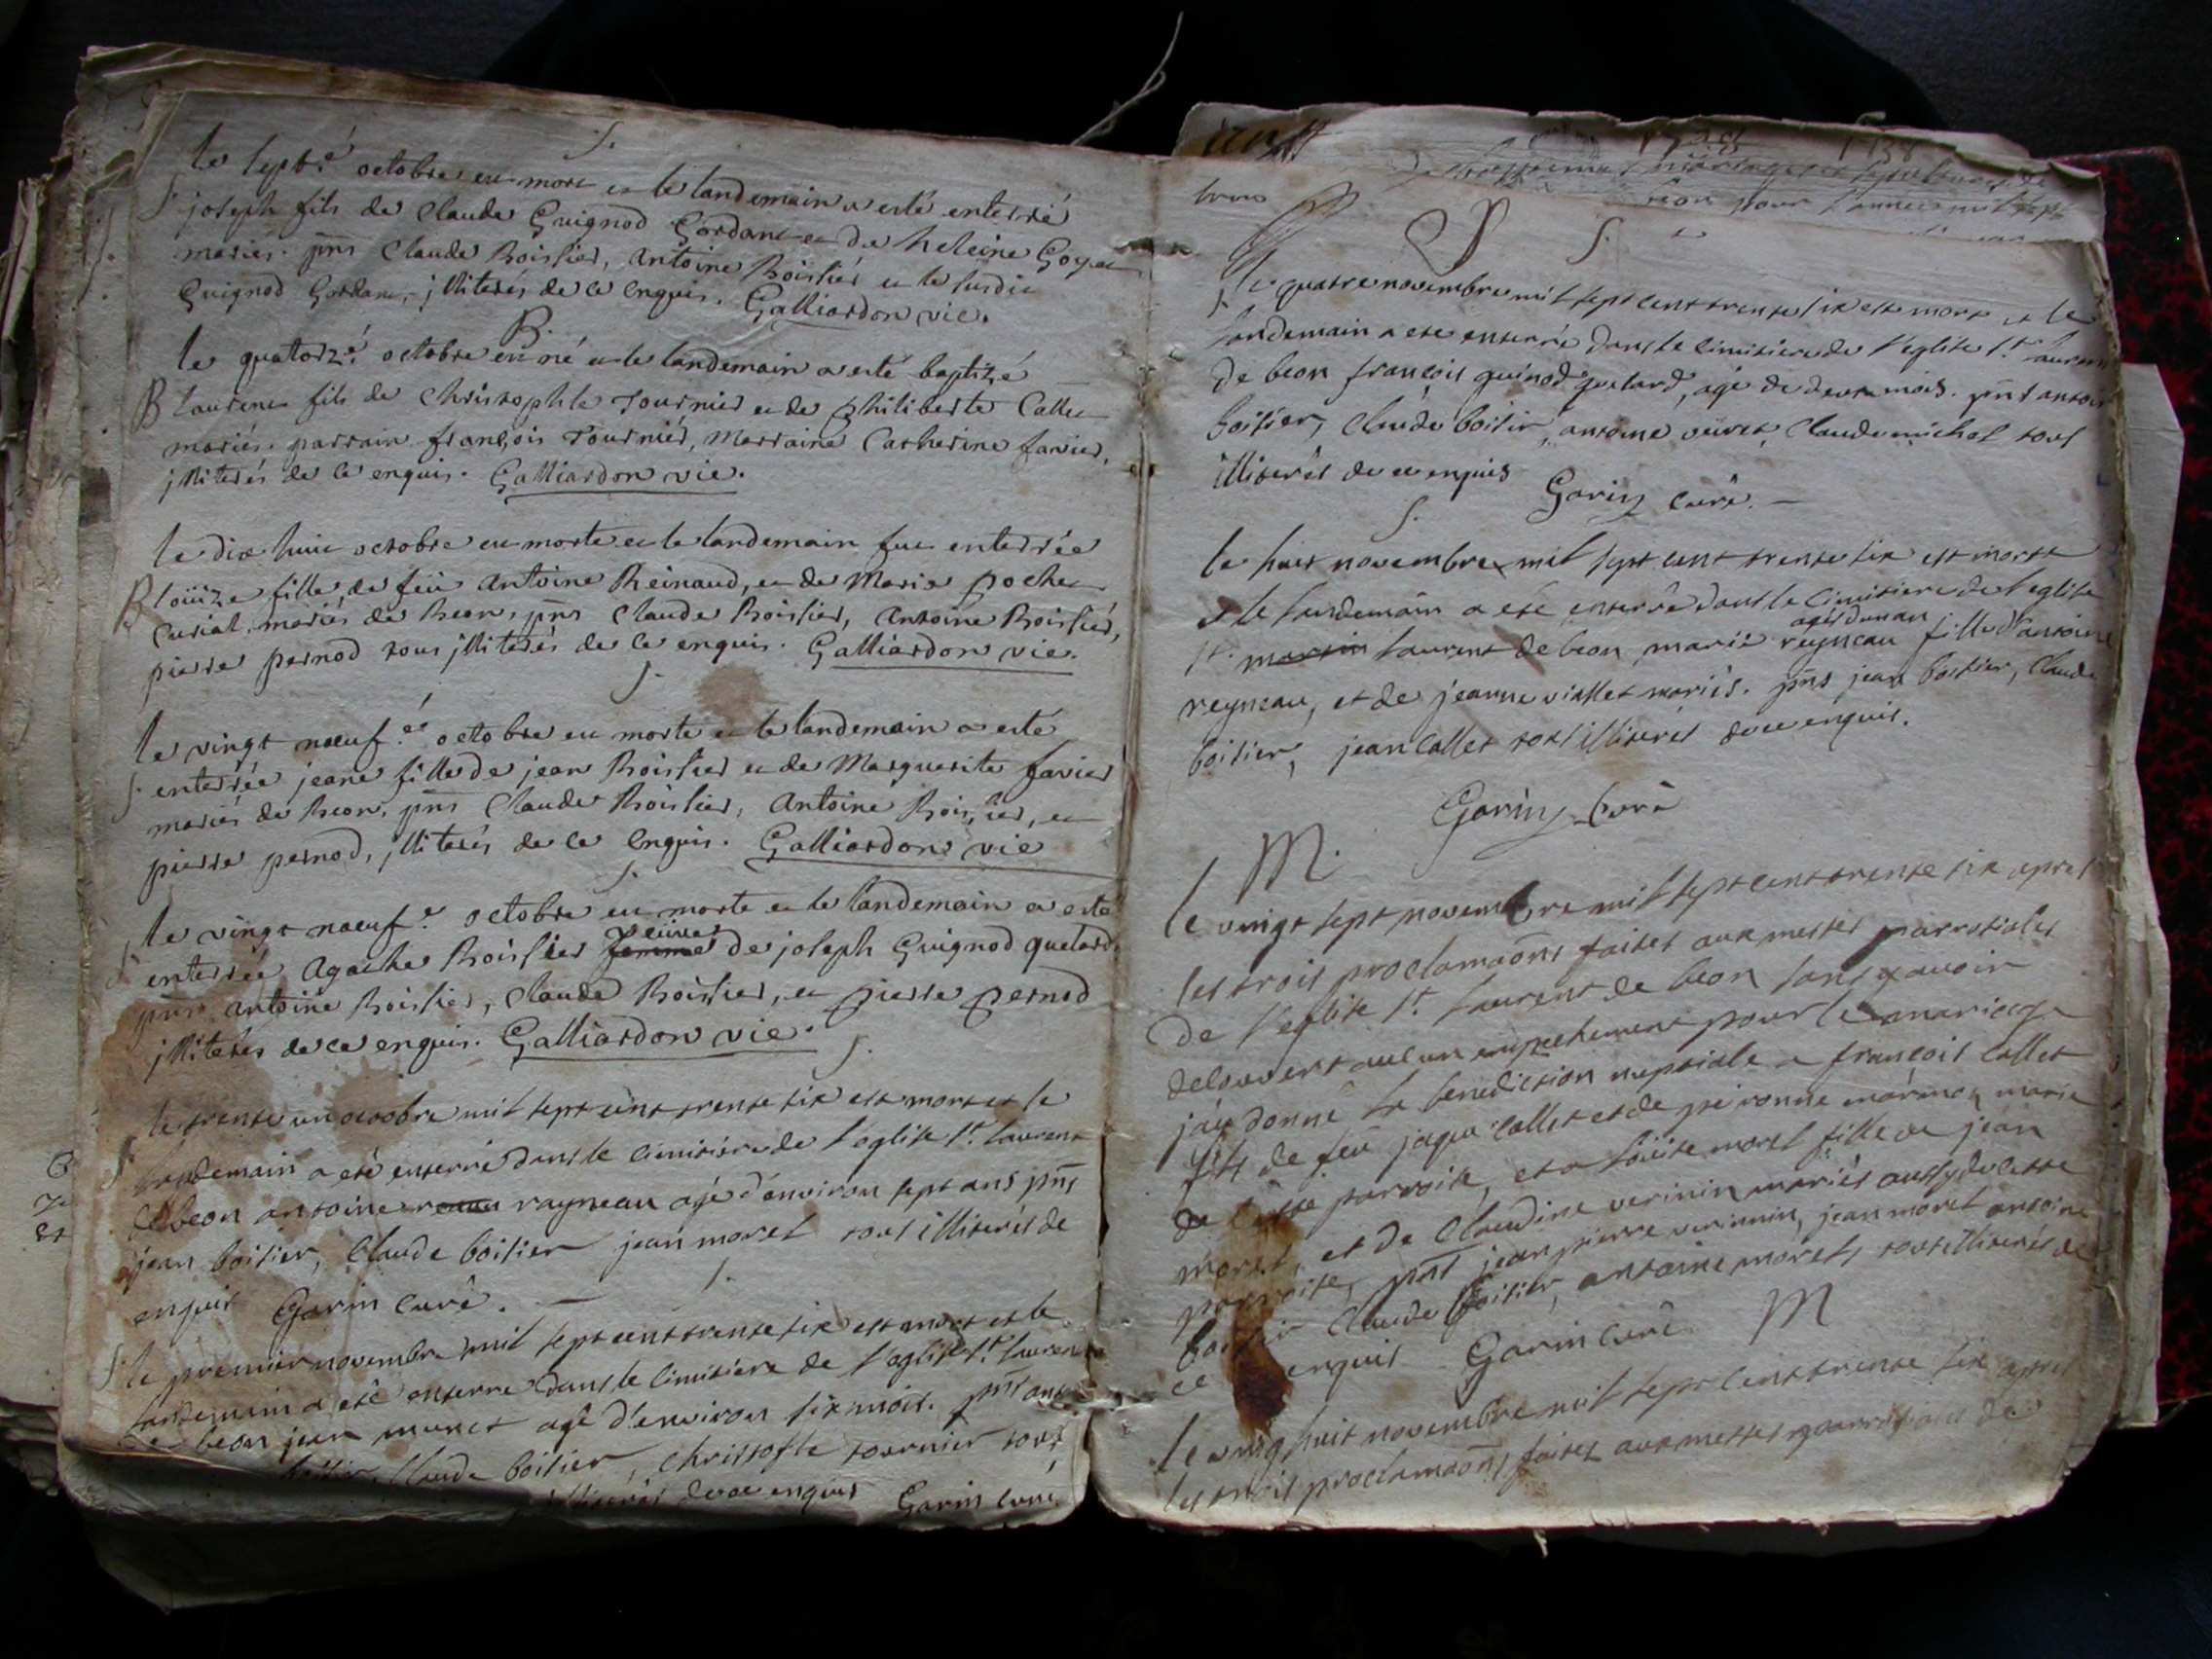 S.
le septe. octobre eu mort et le landemain a esté enterré
S. joseph fils de Claude Guignod Gordant et de heleine Goyet
mariés. pns Claude Boissier, antoine Boissier et le susdit
Guignod Gordant, jlliterés de ce enquis. Galliardon vic.
B.
le quatorze. octobre eu né et le landemain a esté baptizé
B laurent fils de Christophle Tournier et de philiberte Callet
mariés. parrain françois Tournier, marraine Catherine favier,
jlliterés de ce enquis. Galliardon vic.
le dix huit octobre eu morte et le landemain fut enterrée
B loüize fille de feü antoine Reinaud, et de Marie pochet
Curial, mariés de Beon, pns Claude Boissier, antoine Boissier,
pierre pernod tous jlliterés de ce enquis. Galliardon vic.
S.
le vingt noeufe. octobre eu morte et le landemain a esté
S. enterrée jeane fille de jean Boissier et de Marguerite favier
mariés de Beon, pns Claude Boissier, antoine Boissier, et
pierre pernod, jlliterés de ce enquis. Galliardon vic
S.
le vingt noeufe. octobre eu morte et le landemain a esté
veuve
enterrée agathe Boissier femme de joseph Guignod quetard.
pns antoine Boissier, Claude Boissier, et pierre pernod
jlliterés de ce enquis. Galliardon vic.
S.
le trente un octobre mil sept cent trente six est mort et le
S landemain a eté enterré dans le cimitiére de l'eglise st. laurent
de beon antoine rayneau agé d'environ sept ans pns
jean boisier, Claude boisier jean morel tous illiterés de
enquis Garin curé.
S.
S. le premier novembre mil sept cent trente six est mort et le
landemain a eté enterré dans le cimitiere de l'eglise st. laurent
de beon jean agé d'environ six mois. pns ant
boisier, Claude boisier, christofle tournier tous
illiterés de ce enquis Garin curé.
S.
S. le quatre novembre mil sept cent trente six est mort et le
landemain a eté enterré dans le cimitiere de l'eglise st. laurent
de beon françois guinod quetard, agé de deux mois. pns antoi
boisier, Claude boisier, antoine veuret, Claude michal tous
illiterés de ce enquis Garin curé.
S.
le huit novembre mil sept cent trente six est morte
et le landemain a eté enterrée dans le cimitiere de l'eglise
agée d'un an
st. martin laurent de beon marie reyneau fille d'antoine
reyneau, et de jeanne viallet mariés. pns jean boisier, Claude
boisier, jean Callet tous illiterés de ce enquis.
Garin Curé
M.
le vingt sept novembre mil sept cent trente six apres
les trois proclamaons faites aux messes parroisiales
de l'eglise st. laurent de beon sans y avoir
decouvert aucun empechement pour le mariage
j'ay donné la benediction nuptiale a françois Callet
fils de feu jaque Callet et de peronne marie
de cette parroise, et a loüise morel fille de jean
morel, et de Claudine verinin mariés aussy de cette
parroise, pns jean pierre verinnin, jean morel antoine
boisier Claude boisier, antoine morel, tous illiterés de
ce enquis Garin curé
M
le vingt huit novembre mil sept cent trente six apres
les trois proclamaons faites aux messes parroisiales de